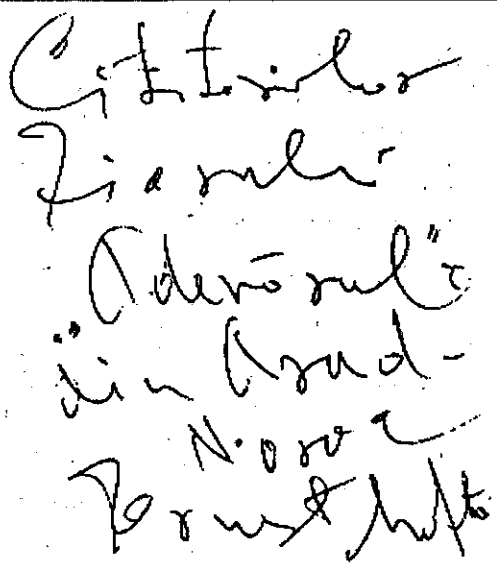 Cititorilor
Ziarului
„Adevărul”
din Arad-
Noroc